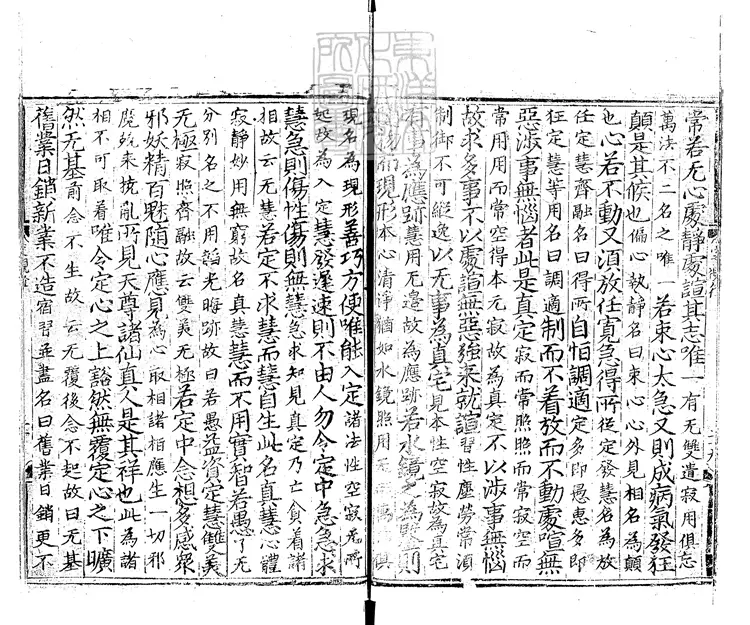 常若无心處靜處諠其志唯一有无雙遣寂用俱忘
萬法不二名之唯一若束心太急又則成病氣發狂
顛是其候也偏心執靜名曰束心心外見相名為顛
也心若不動又湏放任寬急得所從定發慧名為放
任定慧齊融名曰得所自怕調適定多即愚恵多即
狂定慧等用名曰調適制而不着放而不動處喧無
惡涉事無惱者此是真定寂而常照照而常寂空而
常用用而常空得本元寂故為真定不以涉事無惱
故求多事不以處諠無惡強来就諠習性塵勞常湏
制御不可縱逸以无事為真宅見本性空寂故為真宅
有事為應跡慧用无邊故為應跡若水鏡之為鑒則
物而現形本心清淨猶如水鏡照用无萬俱
現名為現形善巧方便唯能入定諸法性空寂无所
起故為入定慧發遲速則不由人勿令定中急急求
慧急則傷性傷則無慧急求知見真定乃亡貪着諸
相故云无慧若定不求慧而慧自生此名真慧心體
寂靜妙用無窮故名真慧慧而不用實智若愚了无
分別名之不用韜光晦跡故曰若愚益資定慧雙美
无極寂照齊融故云雙美无極若定中念想多感衆
邪妖精百魅随心應見為心取相諸相應生一切邪
魔競来撓亂所見天尊諸仙真人是其祥也此為諸
相不可取着唯令定心之上豁然無覆定心之下曠
然无基前念不生故云无覆後念不起故曰无基
舊業日銷新業不造宿習並盡名曰舊業日銷更不